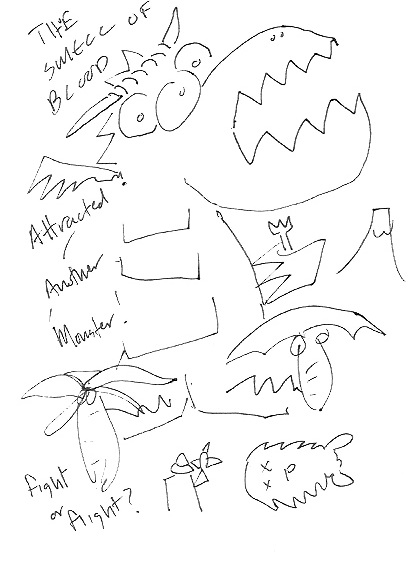 THE
SMELL OF
BLOOD
Attracted
Another
Monster!
Fight
or flight?